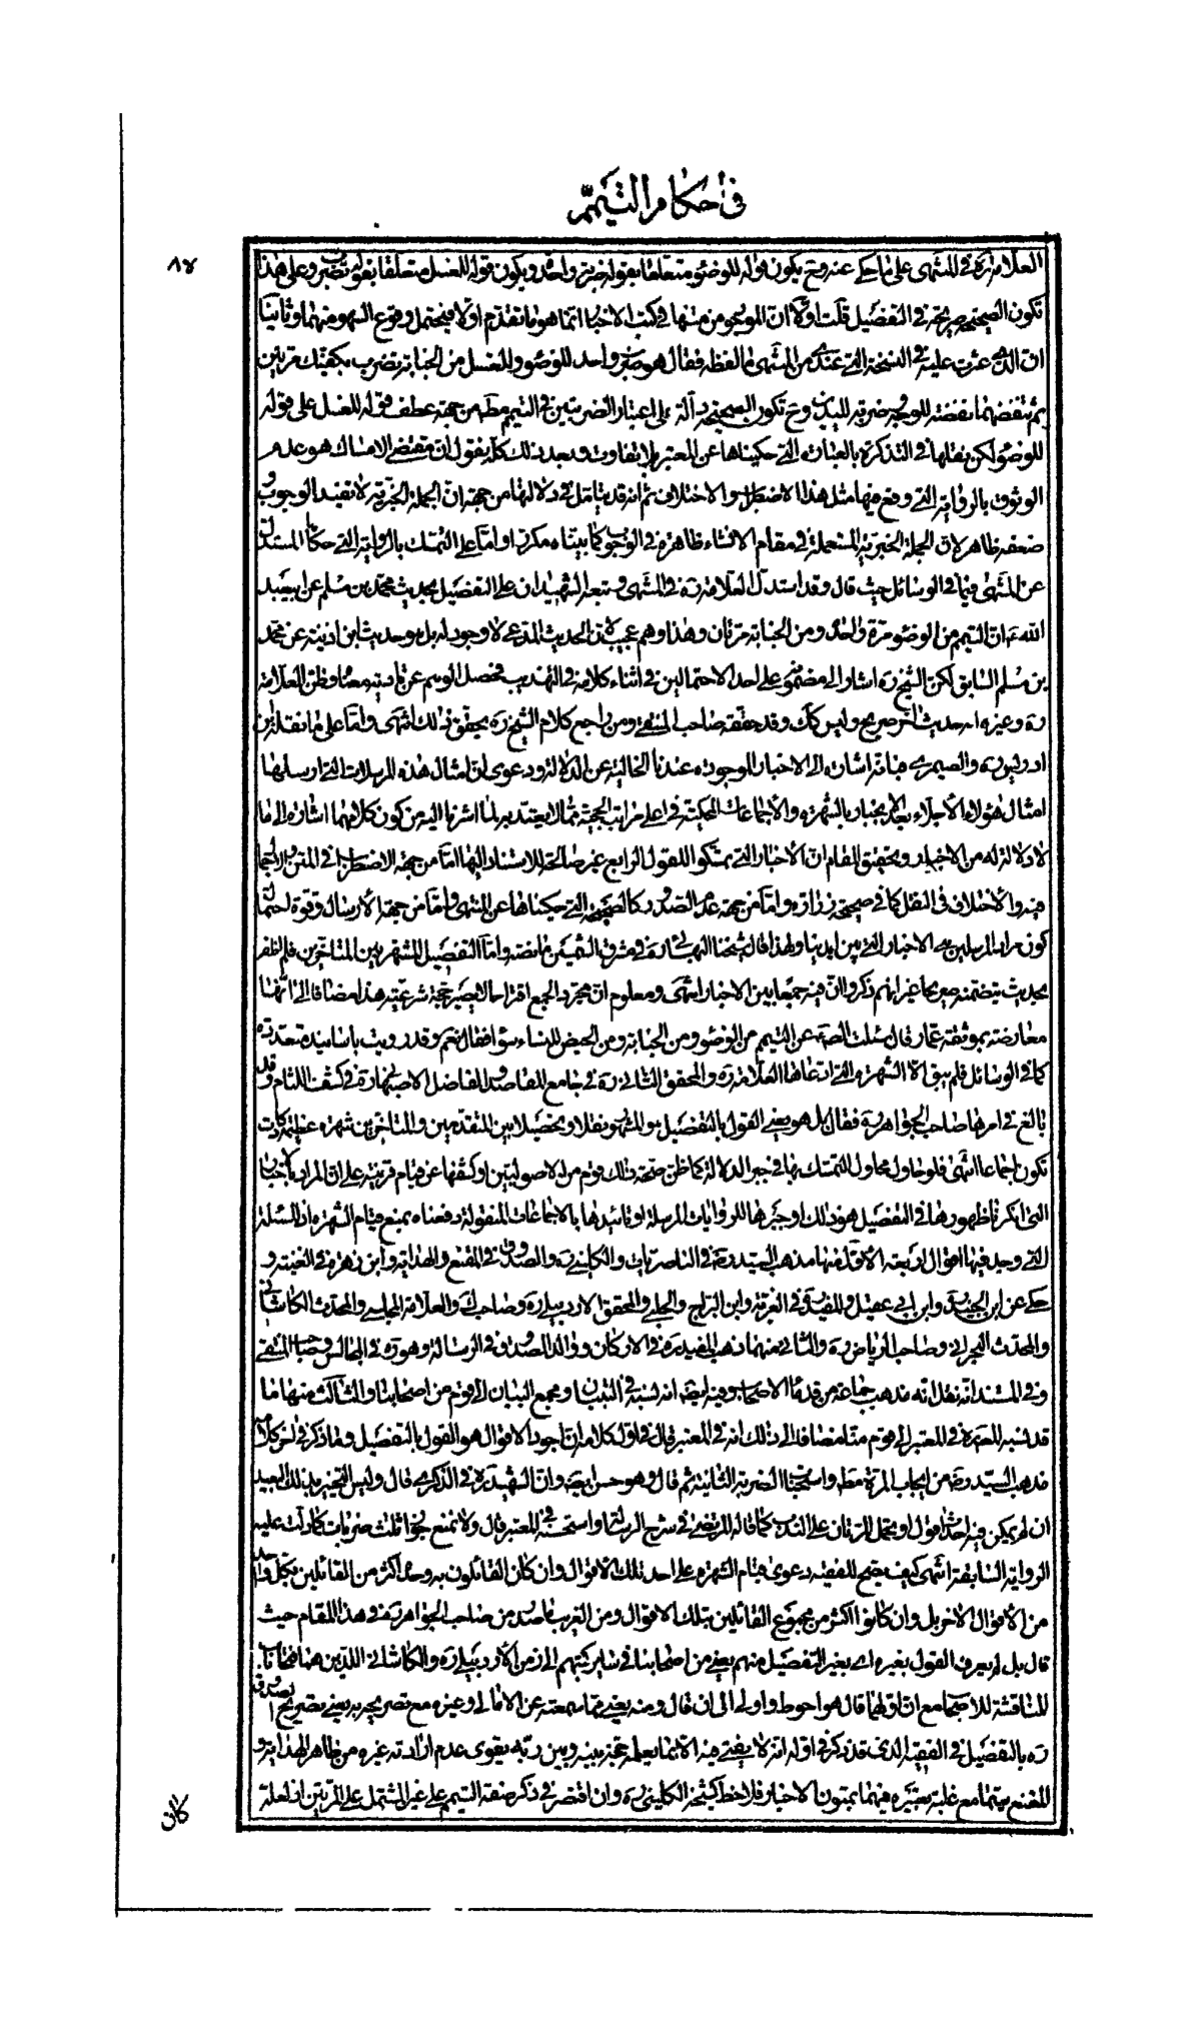 في أحكام التيمم
٨٧
العلامة ره في المنتهى على ما حكى عنه وح يكون قوله للوضوء متعلقا بقوله ضرب واحد ويكون قوله للغسل متعلقا بقوله تضرب وعلى هذا
تكون الصحيحة صريحة في التفضيل قلت اولا ان الموجود من متنها في كتب الاخبار انما هو ما تقدم اولا فيحتمل وقوع السهو منهما وثانيا
ان الذي عثرت عليه في النسخة التي عندي من المنتهى ما لفظه فقال هو ضرب واحد للوضوء وللغسل من الجنابة تضرب بكفيك مرتين
ثم تنفضهما نفضة للوجه ومرة لليدين وح تكون الصحيحة دالة على اعتبار الضربتين في التيمم مط من جهة عطف قوله للغسل على قوله
للوضوء لكن نقلها في التذكرة بالعبارة التي حكيناها عن المعتبر بلا تفاوت وبعد ذلك كله نقول ان مقتضى الامساك هو عدم
الوثوق بالرواية التي وقع فيها مثل هذا الاضطراب والاختلاف ثم انه قد يتأمل في دلالتها من جهة ان الجملة الخبرية لا تفيد الوجوب و
ضعفه ظاهر لان الجملة الخبرية المستعملة في مقام الانشاء ظاهرة في الوجوب كما بيناه مكررا واما على التمسك بالرواية التي حكاها المستدل
عن المنتهى فبما في الوسائل حيث قال وقد استدل العلامة ره في المنتهى وتبعه الشهيدان على التفضيل بحديث محمد بن مسلم عن ابيعبد
الله ع ان التيمم من الوضوء مرة واحدة ومن الجنابة مرتان وهذا وهم عجيب لان الحديث المدعى لا وجود له بل هو حديث ابن اذينة عن محمد
بن مسلم السابق لكن الشيخ ره اشار الى مضمونه على احد الاحتمالين في اثناء كلامه في التهذيب فحصل الوهم عن تأدية معناه وظن العلامة
ره وغيره انه حديث اخر صريح وليس كك وقد حققه صاحب المنتقى ومن راجع كلام الشيخ ره يحقق ذلك انتهى واما على ما نقله ابن
ادريس ره والصيمري فبانه اشارة الى الاخبار الموجودة عندنا الخالية عن الدلالة ودعوى ان امثال هذه المرسلات التي ارسلها
امثال هؤلاء الأجلاء بعد الانجبار بالشهرة والاجماعات المحكية في اعلى مراتب الحجية مما لا يعتد به لما اشرنا اليه من كون كلامهما اشارة الى ما
لا دلالة له من الاخبار وتحقيق المقام ان الاخبار التي تمسكوا للقول الرابع غير صالحة للاستناد اليها اما من جهة الاضطراب في المتن
فيه والاختلاف في النقل كما في صحيحة زرارة واما من جهة عدم الصدور كالصحيحة التي حكيناها عن المنتهى واما من جهة الأرسال وقوة احتمال
كون مراد المرسلين هي الاخبار التي بين ايدينا ولهذا قال شيخنا البهائي ره في مشرق الشمسين ما نصه واما التفضيل المشهور بين المتأخرين فلم نظفر
بحديث يتضمنه صريحا غير انهم ذكروا ان فيه جمعا بين الاخبار انتهى ومعلوم ان مجرد الجمع اقتراحا لا يصير حجة شرعية هذا مضافا الى انها
معارضة بموثقة عمار قال سئلت الصادق ع عن التيمم من الوضوء ومن الجنابة ومن الحيض للنساء سواء فقال نعم وقد رويت باسانيد متعددة
كما في الوسائل فلم يبق الا الشهرة التي ادعاها العلامة ره والمحقق الثاني ره في جامع المقاصد والفاضل الاصبهاني ره في كشف اللثام وقد
بالغ في امرها صاحب الجواهر ره فقال بل هو يعني القول بالتفضيل هو المشهور نقلا وتحصيلا بين المتقدمين والمتأخرين شهرة عظيمة كادت
تكون اجماعا انتهى فلو حاول محاول التمسك بها في جبر الدلالة كما ظن صحة ذلك قوم من الاصوليين او كشفها عن قيام قرينة على ان المراد بالاخبار
التي انكرنا ظهورها في التفضيل هو ذلك او جبرها للروايات المرسلة او تأييدها بالاجماعات المنقولة دفعناه بمنع قيام الشهرة اذ المسئلة
التي وجد فيها اقوال اربعة الاول منها مذهب السيد ره في الناصريات والكليني ره والصدوق في المقنع والهداية وابن زهرة في الغنية و
حكى عن ابن الجنيد وابن ابي عقيل والمفيد ره في الغرية وابن البراج والحلبي والمحقق الاردبيلي ره وصاحب ك والعلامة المجلسي والمحدث الكاشاني
والمحدث البحراني وصاحب الرياض ره والثاني منهما مذهب المفيد ره في الاركان ووالد الصدوق في الرسالة وهو ره في المجالس وصاحب المنتقى
وفي المستند انه نقل انه مذهب جماعة من قدماء الاصحاب وفيه ايضا انه نسبه في التبيان ومجمع البيان الى قوم من اصحابنا والثالث منها ما
قد نسبه المحقق ره في المعتبر الى قوم منا مضافا الى ذلك انه في المعتبر قال في اول كلامه ان اجود الاقوال هو القول بالتفضيل وما ذكر في اخر كلامه
مذهب السيد رضه من ايجاب المرة مط واستحباب الضربة الثانية ثم قال وهو حسن ايضا وان الشهيد ره في الذكرى قال وليس التخيير بذلك البعيد
ان لم يكن فيه احداث قول او يحمل المرتان على الندب كما قاله المرتضى في شرح الرسالة واستحسنه في المعتبر قال ولا نمنع جواز ثلث ضربات كما دلت عليه
الرواية السابقة انتهى كيف يصح للفقيه دعوى قيام الشهرة على احد تلك الاقوال وان كان القائلون به وحده اكثر من القائلين بكل واحد
من الأقوال الاخر بل وان كانوا اكثر من مجموع القائلين بتلك الاقوال ومن الغريب ما صدر من صاحب الجواهر ره في هذا المقام حيث
قال بل لم يعرف القول بغيره اي بغير التفضيل منهم يعني من اصحابنا في ساير كتبهم الى زمن الأردبيلي ره والكاشاني اللذين هما فتحا باب
المناقشة للاصحاب مع ان اولهما قال هو احوط واولى الى ان قال ومنه يعني مما سمعته عن الامالي وغيره مع تصريحه يعني تصريح الصدوق
ره بالتفضيل في الفقيه الذي قد ذكر في اوله انه لا يفتي فيه الا بما يعلمه حجة بينه وبين ربه يقوى عدم ارادته غيره من ظاهر الهداية و
المقنع سيما مع غلبة تعبيره فيهما بمتون الاخبار فلاحظ كشيخه الكليني ره وان اقتصر في ذكر صفة التيمم على غير المشتمل على المرتين اذ لعله
كان